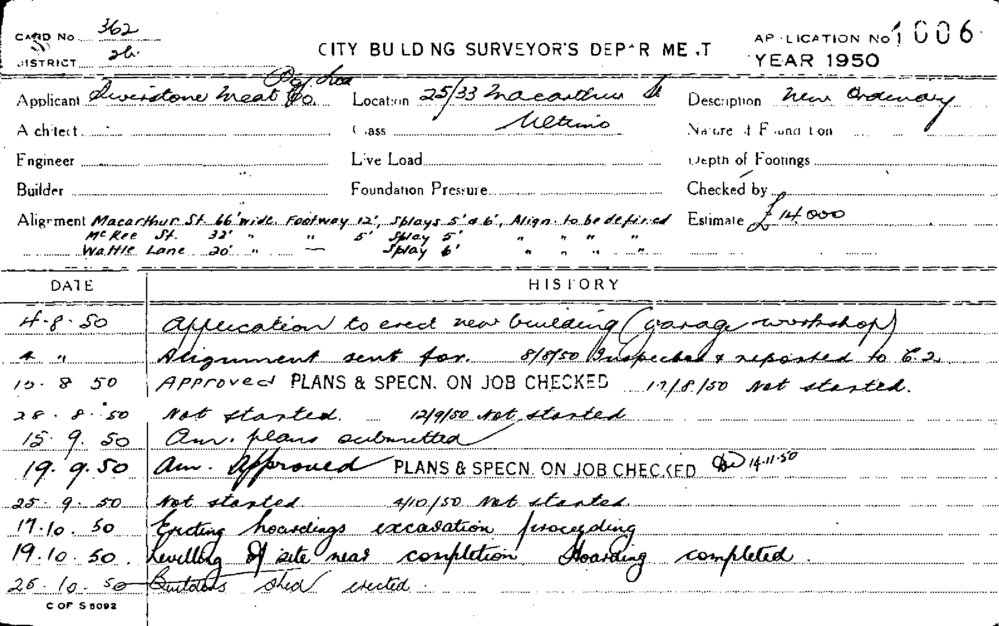 CARD No 362
DISTRICT 26.
CITY BUILDING SURVEYOR'S DEPARTMENT
APPLICATION No 1006
YEAR 1950
Applicant Riverstone Meat Co. Pty Ltd
Location 25/33 Macarthur St
Description New Ordinary
Architect
Class Ultimo
Nature of Foundation
Engineer
Live Load
Depth of Footings
Builder
Foundation Pressure
Checked by
Alignment Macarthur St. 66' wide. Footway 12', Splays 5' & 6', Align. to be defined
Estimate £14000
McKee St. 32' " " 5' Splay 5' " " " "
Wattle Lane 20' " — Splay 6' " " " "
DATE HISTORY
4-8-50 Application to erect new building (garage workshop)
4 " Alignment sent for. 8/8/50 Inspected & reported to C.2.
15. 8 50 Approved PLANS & SPECN. ON JOB CHECKED 17/8/50 Not started.
28. 8. 50 Not started. 12/9/50 Not started
15. 9. 50 Am. plans submitted
19. 9. 50 Am. Approved PLANS & SPECN. ON JOB CHECKED 14.11.50
25. 9. 50 Not started 4/10/50 Not started.
17.10. 50 Erecting hoardings excavation proceeding
19.10. 50. Levelling of site near completion Hoarding completed.
25. 10. 50 Builders shed erected.
C OF S 5092